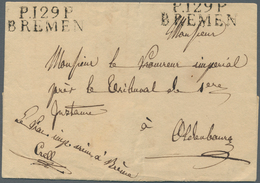 P.129.P.
BREMEN
P.129.P.
BREMEN
Monsieur
Monsieur le Procureur imperial
près le Tribunal de 1ere
Instance
à Oldenbourg
Le Proc. imp. à Brême